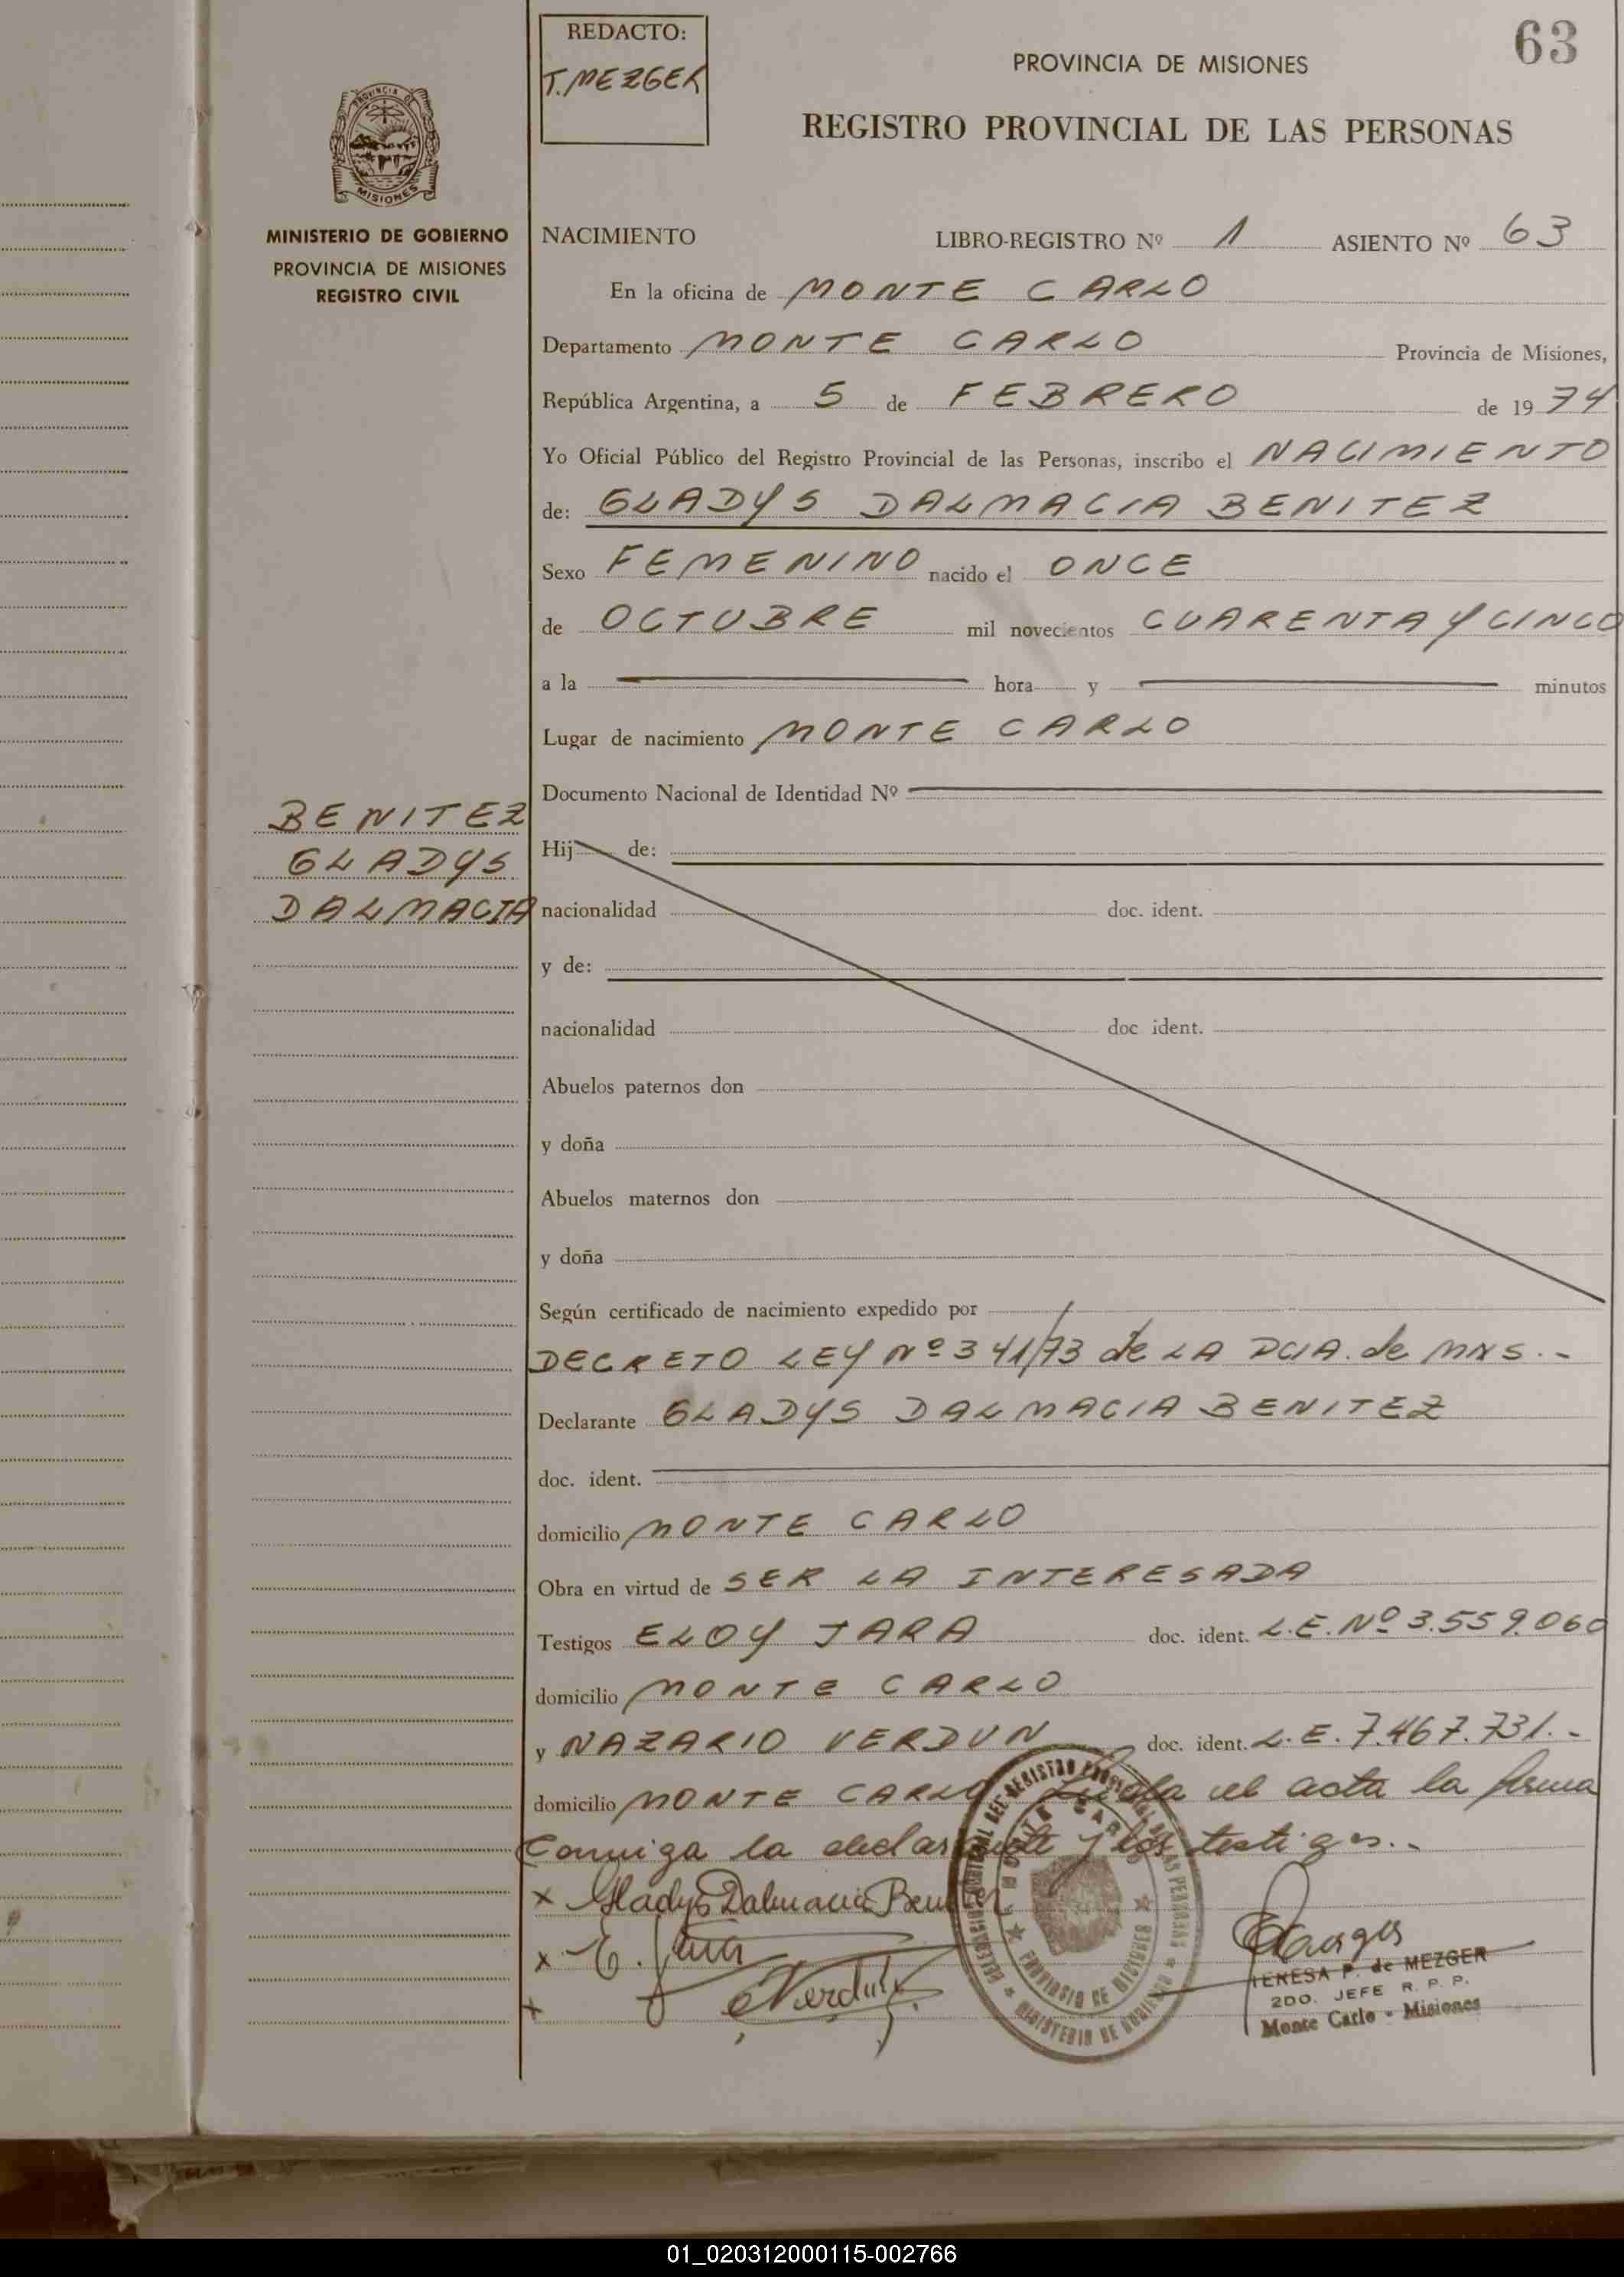 REDACTO:
T. MEZGER
63
PROVINCIA DE MISIONES
REGISTRO PROVINCIAL DE LAS PERSONAS
PROVINCIA DE
MISIONES
MINISTERIO DE GOBIERNO
PROVINCIA DE MISIONES
REGISTRO CIVIL
NACIMIENTO LIBRO-REGISTRO Nº 1 ASIENTO Nº 63
En la oficina de MONTE CARLO
Departamento MONTE CARLO Provincia de Misiones,
República Argentina, a 5 de FEBRERO de 1974
Yo Oficial Público del Registro Provincial de las Personas, inscribo el NACIMIENTO
de: GLADYS DALMACIA BENITEZ
Sexo FEMENINO nacido el ONCE
de OCTUBRE mil novecientos CUARENTA Y CINCO
a la hora y minutos
Lugar de nacimiento MONTE CARLO
Documento Nacional de Identidad Nº
BENITEZ
GLADYS
DALMACIA
Hij de:
nacionalidad doc. ident.
y de:
nacionalidad doc ident.
Abuelos paternos don
y doña
Abuelos maternos don
y doña
Según certificado de nacimiento expedido por
DECRETO LEY Nº 341/73 de LA PCIA. de MNS.-
Declarante GLADYS DALMACIA BENITEZ
doc. ident.
domicilio MONTE CARLO
Obra en virtud de SER LA INTERESADA
Testigos ELOY JARA doc. ident. L.E. Nº 3.559.060
domicilio MONTE CARLO
y NAZARIO VERDUN doc. ident. L.E. 7.467.731.-
domicilio MONTE CARLO Leida el acta la firma
Conmigo la declarante y los testigos.-
x Gladys Dalmacia Benitez
x E. Jara
x Verdun
MONTE CARLO
PROVINCIA DE MISIONES
MINISTERIO DE GOBIERNO
TERESA P. de MEZGER
2DO. JEFE R. P. P.
Monte Carlo - Misiones
01_020312000115-002766